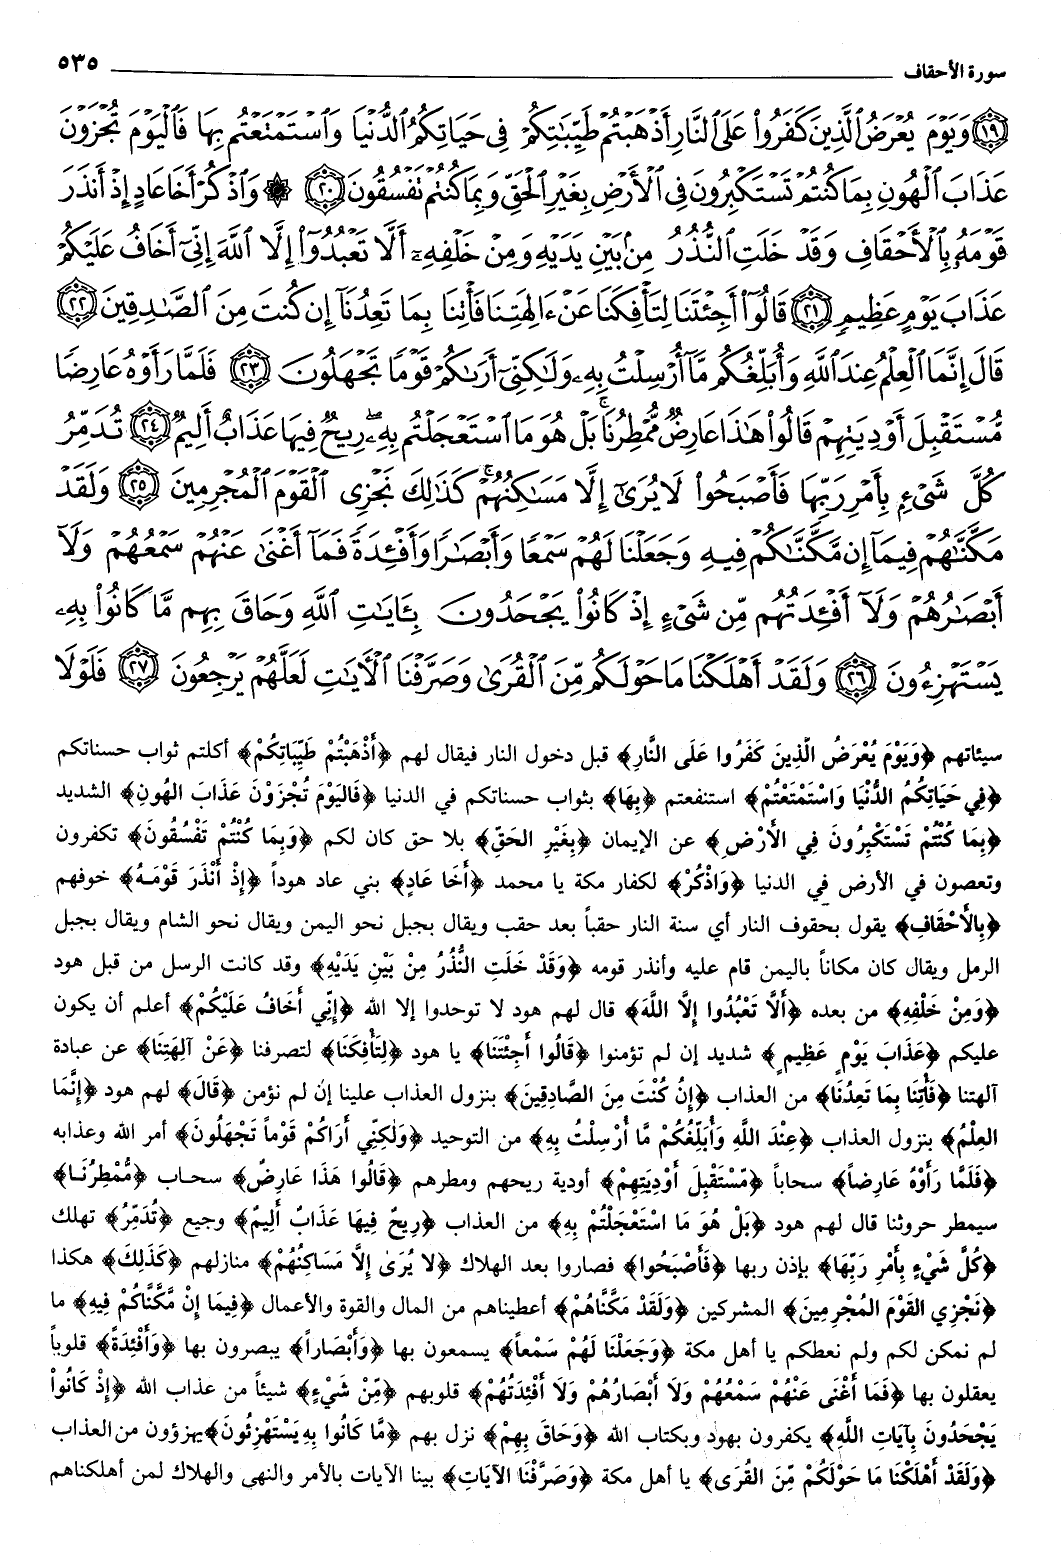 سورة الأحقاف ٥٣٥
﴿١٩﴾ وَيَوْمَ يُعْرَضُ ٱلَّذِينَ كَفَرُواْ عَلَى ٱلنَّارِ أَذْهَبْتُمْ طَيِّبَـٰتِكُمْ فِى حَيَاتِكُمُ ٱلدُّنْيَا وَٱسْتَمْتَعْتُم بِهَا فَٱلْيَوْمَ تُجْزَوْنَ
عَذَابَ ٱلْهُونِ بِمَا كُنتُمْ تَسْتَكْبِرُونَ فِى ٱلْأَرْضِ بِغَيْرِ ٱلْحَقِّ وَبِمَا كُنتُمْ نَفْسُقُونَ ﴿٢٠﴾ ۞ وَٱذْكُرْ أَخَا عَادٍ إِذْ أَنذَرَ
قَوْمَهُۥ بِٱلْأَحْقَافِ وَقَدْ خَلَتِ ٱلنُّذُرُ مِنۢ بَيْنِ يَدَيْهِ وَمِنْ خَلْفِهِۦٓ أَلَّا تَعْبُدُوٓاْ إِلَّا ٱللَّهَ إِنِّىٓ أَخَافُ عَلَيْكُمْ
عَذَابَ يَوْمٍ عَظِيمٍ ﴿٢١﴾ قَالُوٓاْ أَجِئْتَنَا لِتَأْفِكَنَا عَنْ ءَالِهَتِنَا فَأْتِنَا بِمَا تَعِدُنَآ إِن كُنتَ مِنَ ٱلصَّـٰدِقِينَ ﴿٢٢﴾
قَالَ إِنَّمَا ٱلْعِلْمُ عِندَ ٱللَّهِ وَأُبَلِّغُكُم مَّآ أُرْسِلْتُ بِهِۦ وَلَـٰكِنِّىٓ أَرَىٰكُمْ قَوْمًا تَجْهَلُونَ ﴿٢٣﴾ فَلَمَّا رَأَوْهُ عَارِضًا
مُّسْتَقْبِلَ أَوْدِيَتِهِمْ قَالُواْ هَـٰذَا عَارِضٌ مُّمْطِرُنَا ۚ بَلْ هُوَ مَا ٱسْتَعْجَلْتُم بِهِۦ ۖ رِيحٌ فِيهَا عَذَابٌ أَلِيمٌ ﴿٢٤﴾ تُدَمِّرُ
كُلَّ شَىْءٍۭ بِأَمْرِ رَبِّهَا فَأَصْبَحُواْ لَا يُرَىٰٓ إِلَّا مَسَـٰكِنُهُمْ ۚ كَذَٰلِكَ نَجْزِى ٱلْقَوْمَ ٱلْمُجْرِمِينَ ﴿٢٥﴾ وَلَقَدْ
مَكَّنَّـٰهُمْ فِيمَآ إِن مَّكَّنَّـٰكُمْ فِيهِ وَجَعَلْنَا لَهُمْ سَمْعًا وَأَبْصَـٰرًا وَأَفْـِٔدَةً فَمَآ أَغْنَىٰ عَنْهُمْ سَمْعُهُمْ وَلَآ
أَبْصَـٰرُهُمْ وَلَآ أَفْـِٔدَتُهُم مِّن شَىْءٍ إِذْ كَانُواْ يَجْحَدُونَ بِـَٔايَـٰتِ ٱللَّهِ وَحَاقَ بِهِم مَّا كَانُواْ بِهِۦ
يَسْتَهْزِءُونَ ﴿٢٦﴾ وَلَقَدْ أَهْلَكْنَا مَا حَوْلَكُم مِّنَ ٱلْقُرَىٰ وَصَرَّفْنَا ٱلْأَيَـٰتِ لَعَلَّهُمْ يَرْجِعُونَ ﴿٢٧﴾ فَلَوْلَا
سيئاتهم ﴿وَيَوْمَ يُعْرَضُ الَّذِينَ كَفَرُوا عَلَى النَّارِ﴾ قبل دخول النار فيقال لهم ﴿أَذْهَبْتُمْ طَيِّبَاتِكُمْ﴾ أكلتم ثواب حسناتكم
﴿فِي حَيَاتِكُمُ الدُّنْيَا وَاسْتَمْتَعْتُمْ﴾ استنفعتم ﴿بِهَا﴾ بثواب حسناتكم في الدنيا ﴿فَالْيَوْمَ تُجْزَوْنَ عَذَابَ الهُونِ﴾ الشديد
﴿بِمَا كُنْتُمْ تَسْتَكْبِرُونَ فِي الأَرْضِ﴾ عن الإيمان ﴿بِغَيْرِ الحَقِّ﴾ بلا حق كان لكم ﴿وَبِمَا كُنْتُمْ تَفْسُقُونَ﴾ تكفرون
وتعصون في الأرض في الدنيا ﴿وَاذْكُرْ﴾ لكفار مكة يا محمد ﴿أَخَا عَادٍ﴾ بني عاد هوداً ﴿إِذْ أَنْذَرَ قَوْمَهُ﴾ خوفهم
﴿بِالأَحْقَافِ﴾ يقول بحقوف النار أي سنة النار حقباً بعد حقب ويقال بجبل نحو اليمن ويقال نحو الشام ويقال بجبل
الرمل ويقال كان مكاناً باليمن قام عليه وأنذر قومه ﴿وَقَدْ خَلَتِ النُّذُرُ مِنْ بَيْنِ يَدَيْهِ﴾ وقد كانت الرسل من قبل هود
﴿وَمِنْ خَلْفِهِ﴾ من بعده ﴿أَلَّا تَعْبُدُوا إِلَّا اللَّهَ﴾ قال لهم هود لا توحدوا إلا الله ﴿إِنِّي أَخَافُ عَلَيْكُمْ﴾ أعلم أن يكون
عليكم ﴿عَذَابَ يَوْمٍ عَظِيمٍ﴾ شديد إن لم تؤمنوا ﴿قَالُوا أَجِئْتَنَا﴾ يا هود ﴿لِتَأْفِكَنَا﴾ لتصرفنا ﴿عَنْ آلِهَتِنَا﴾ عن عبادة
آلهتنا ﴿فَأْتِنَا بِمَا تَعِدُنَا﴾ من العذاب ﴿إِنْ كُنْتَ مِنَ الصَّادِقِينَ﴾ بنزول العذاب علينا إن لم نؤمن ﴿قَالَ﴾ لهم هود ﴿إِنَّمَا
العِلْمُ﴾ بنزول العذاب ﴿عِنْدَ اللَّهِ وَأُبَلِّغُكُمْ مَّا أُرْسِلْتُ بِهِ﴾ من التوحيد ﴿وَلَكِنِّي أَرَاكُمْ قَوْماً تَجْهَلُونَ﴾ أمر الله وعذابه
﴿فَلَمَّا رَأَوْهُ عَارِضاً﴾ سحاباً ﴿مُّسْتَقْبِلَ أَوْدِيَتِهِمْ﴾ أودية ريحهم ومطرهم ﴿قَالُوا هَذَا عَارِضٌ﴾ سحاب ﴿مُّمْطِرُنَا﴾
سيمطر حروثنا قال لهم هود ﴿بَلْ هُوَ مَا اسْتَعْجَلْتُمْ بِهِ﴾ من العذاب ﴿رِيحٌ فِيهَا عَذَابٌ أَلِيمٌ﴾ وجيع ﴿تُدَمِّرُ﴾ تهلك
﴿كُلَّ شَيْءٍ بِأَمْرِ رَبِّهَا﴾ بإذن ربها ﴿فَأَصْبَحُوا﴾ فصاروا بعد الهلاك ﴿لا يُرَى إِلَّا مَسَاكِنُهُمْ﴾ منازلهم ﴿كَذَلِكَ﴾ هكذا
﴿نَجْزِي القَوْمَ المُجْرِمِينَ﴾ المشركين ﴿وَلَقَدْ مَكَّنَّاهُمْ﴾ أعطيناهم من المال والقوة والأعمال ﴿فِيمَا إِنْ مَّكَّنَّاكُمْ فِيهِ﴾ ما
لم نمكن لكم ولم نعطكم يا أهل مكة ﴿وَجَعَلْنَا لَهُمْ سَمْعاً﴾ يسمعون بها ﴿وَأَبْصَاراً﴾ يبصرون بها ﴿وَأَفْئِدَةً﴾ قلوباً
يعقلون بها ﴿فَمَا أَغْنَى عَنْهُمْ سَمْعُهُمْ وَلا أَبْصَارُهُمْ وَلا أَفْئِدَتُهُمْ﴾ قلوبهم ﴿مِّنْ شَيْءٍ﴾ شيئاً من عذاب الله ﴿إِذْ كَانُوا
يَجْحَدُونَ بِآيَاتِ اللَّهِ﴾ يكفرون بهود وبكتاب الله ﴿وَحَاقَ بِهِمْ﴾ نزل بهم ﴿مَّا كَانُوا بِهِ يَسْتَهْزِئُونَ﴾ يهزؤون من العذاب
﴿وَلَقَدْ أَهْلَكْنَا مَا حَوْلَكُمْ مِّنَ القُرَى﴾ يا أهل مكة ﴿وَصَرَّفْنَا الآيَاتِ﴾ بينا الآيات بالأمر والنهى والهلاك لمن أهلكناهم